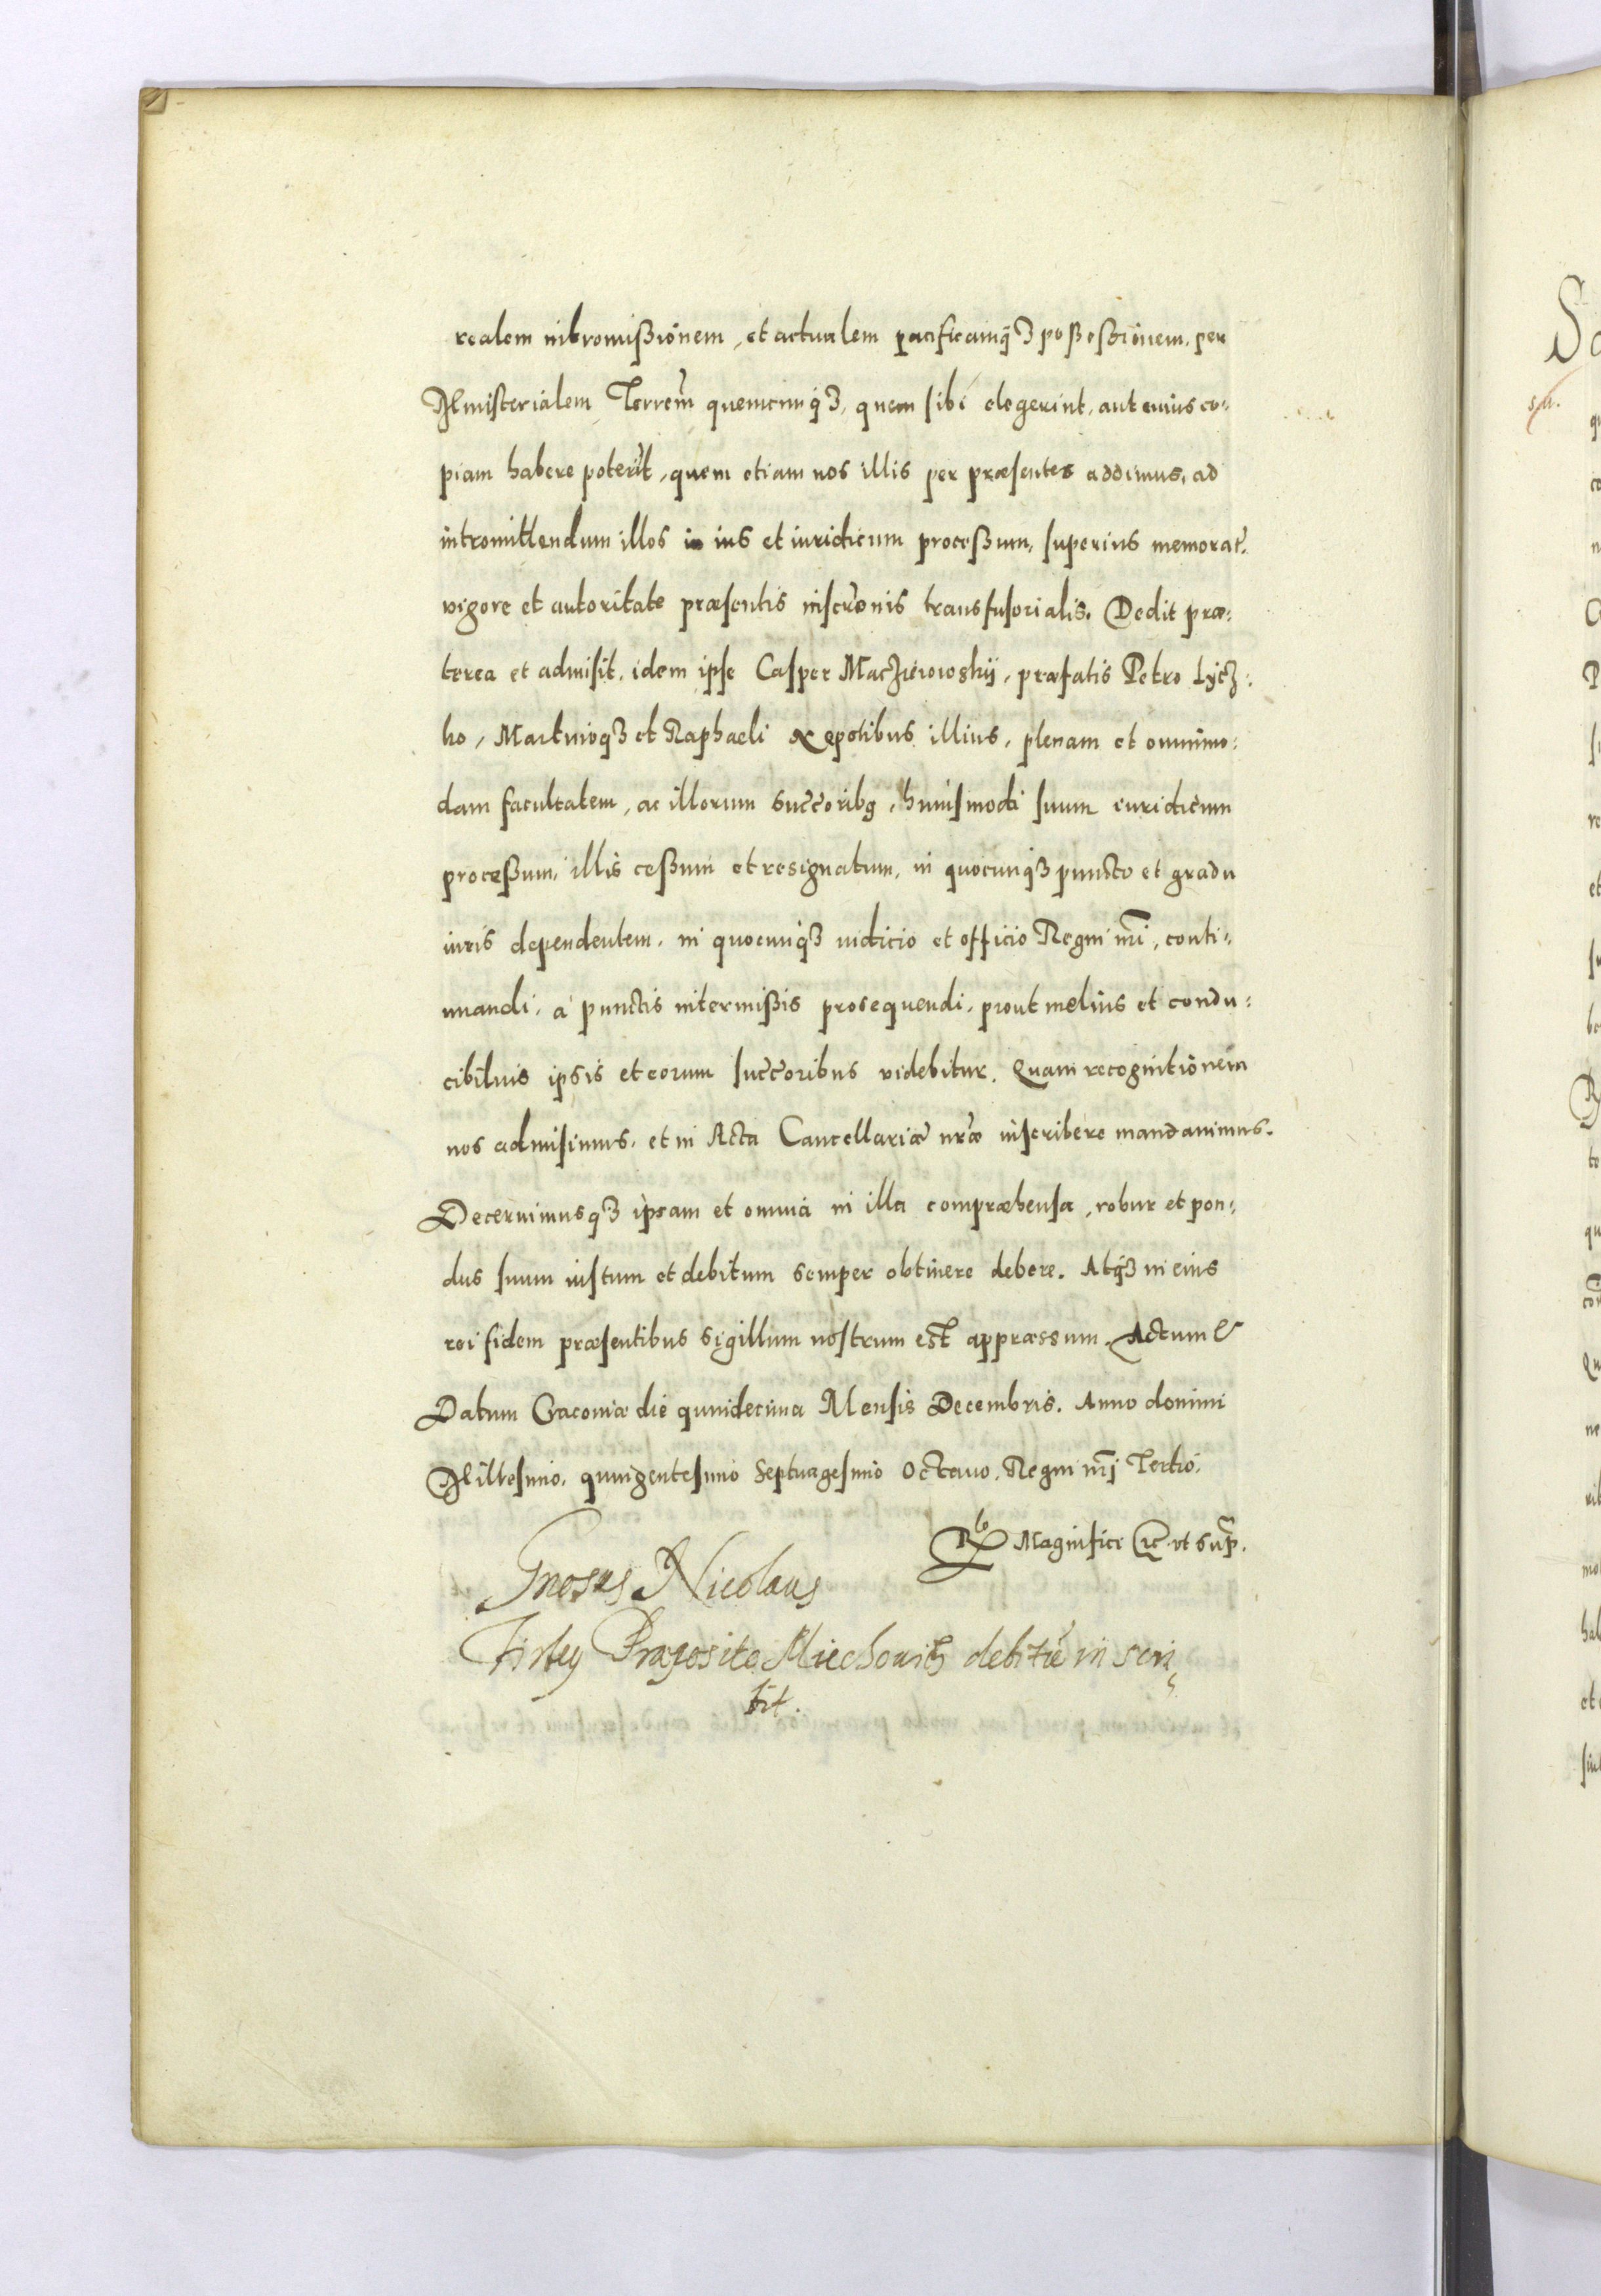 realem intromißionem, et actualem pacificamq3 poßeßionem, per
Ministerialem Terrem̃ quemcunq3, quem sibi elegerint, aut cuius co-
piam habere poterit, quem etiam nos illis per præsentes addimus, ad
intromittendum illos in ius et iuridicum proceßum, superius memorat̃.
vigore et autoritate præsentis inscrõnis transfusorialis. Dedit præ-
terea et admisit, idem ipse Casper Macziewowskij, præfatis Petro Lycz-
ko, Martinoq3 et Raphaeli Nepotibus illius, plenam et omnimo-
dam facultatem, ac illorum succoribus, huiusmodi suum iuridicum
proceßum, illis ceßum et resignatum, in quocunq3 puncto et gradu
iuris dependentem, in quocunq3 iudicio et officio Regni nr̃i, conti-
nuandi, à punctis intermißis prosequendi, prout melius et condu-
cibilius ipsis et eorum succoribus videbitur. Quam recognitionem
nos admisimus, et in Acta Cancellariæ nr̃æ inscribere mandavimus.
Decernimusq3 ipsam et omnia in illa compræhensa, robur et pon-
dus suum iustum et debitum semper obtinere debere. Atq3 in eius
rei fidem præsentibus sigillum nostrum est appræssum. Actum &
Datum Cracoviæ die quindecima Mensis Decembris. Anno domini
Millesimo, quingentesimo Septuagesimo Octavo, Regni nr̃j Tertio.
Rlo Magnifici &c ut sup̃.
Gnosus Nicolaus
Firley Præposito Miechouit3 debitũ in scri-
bit.